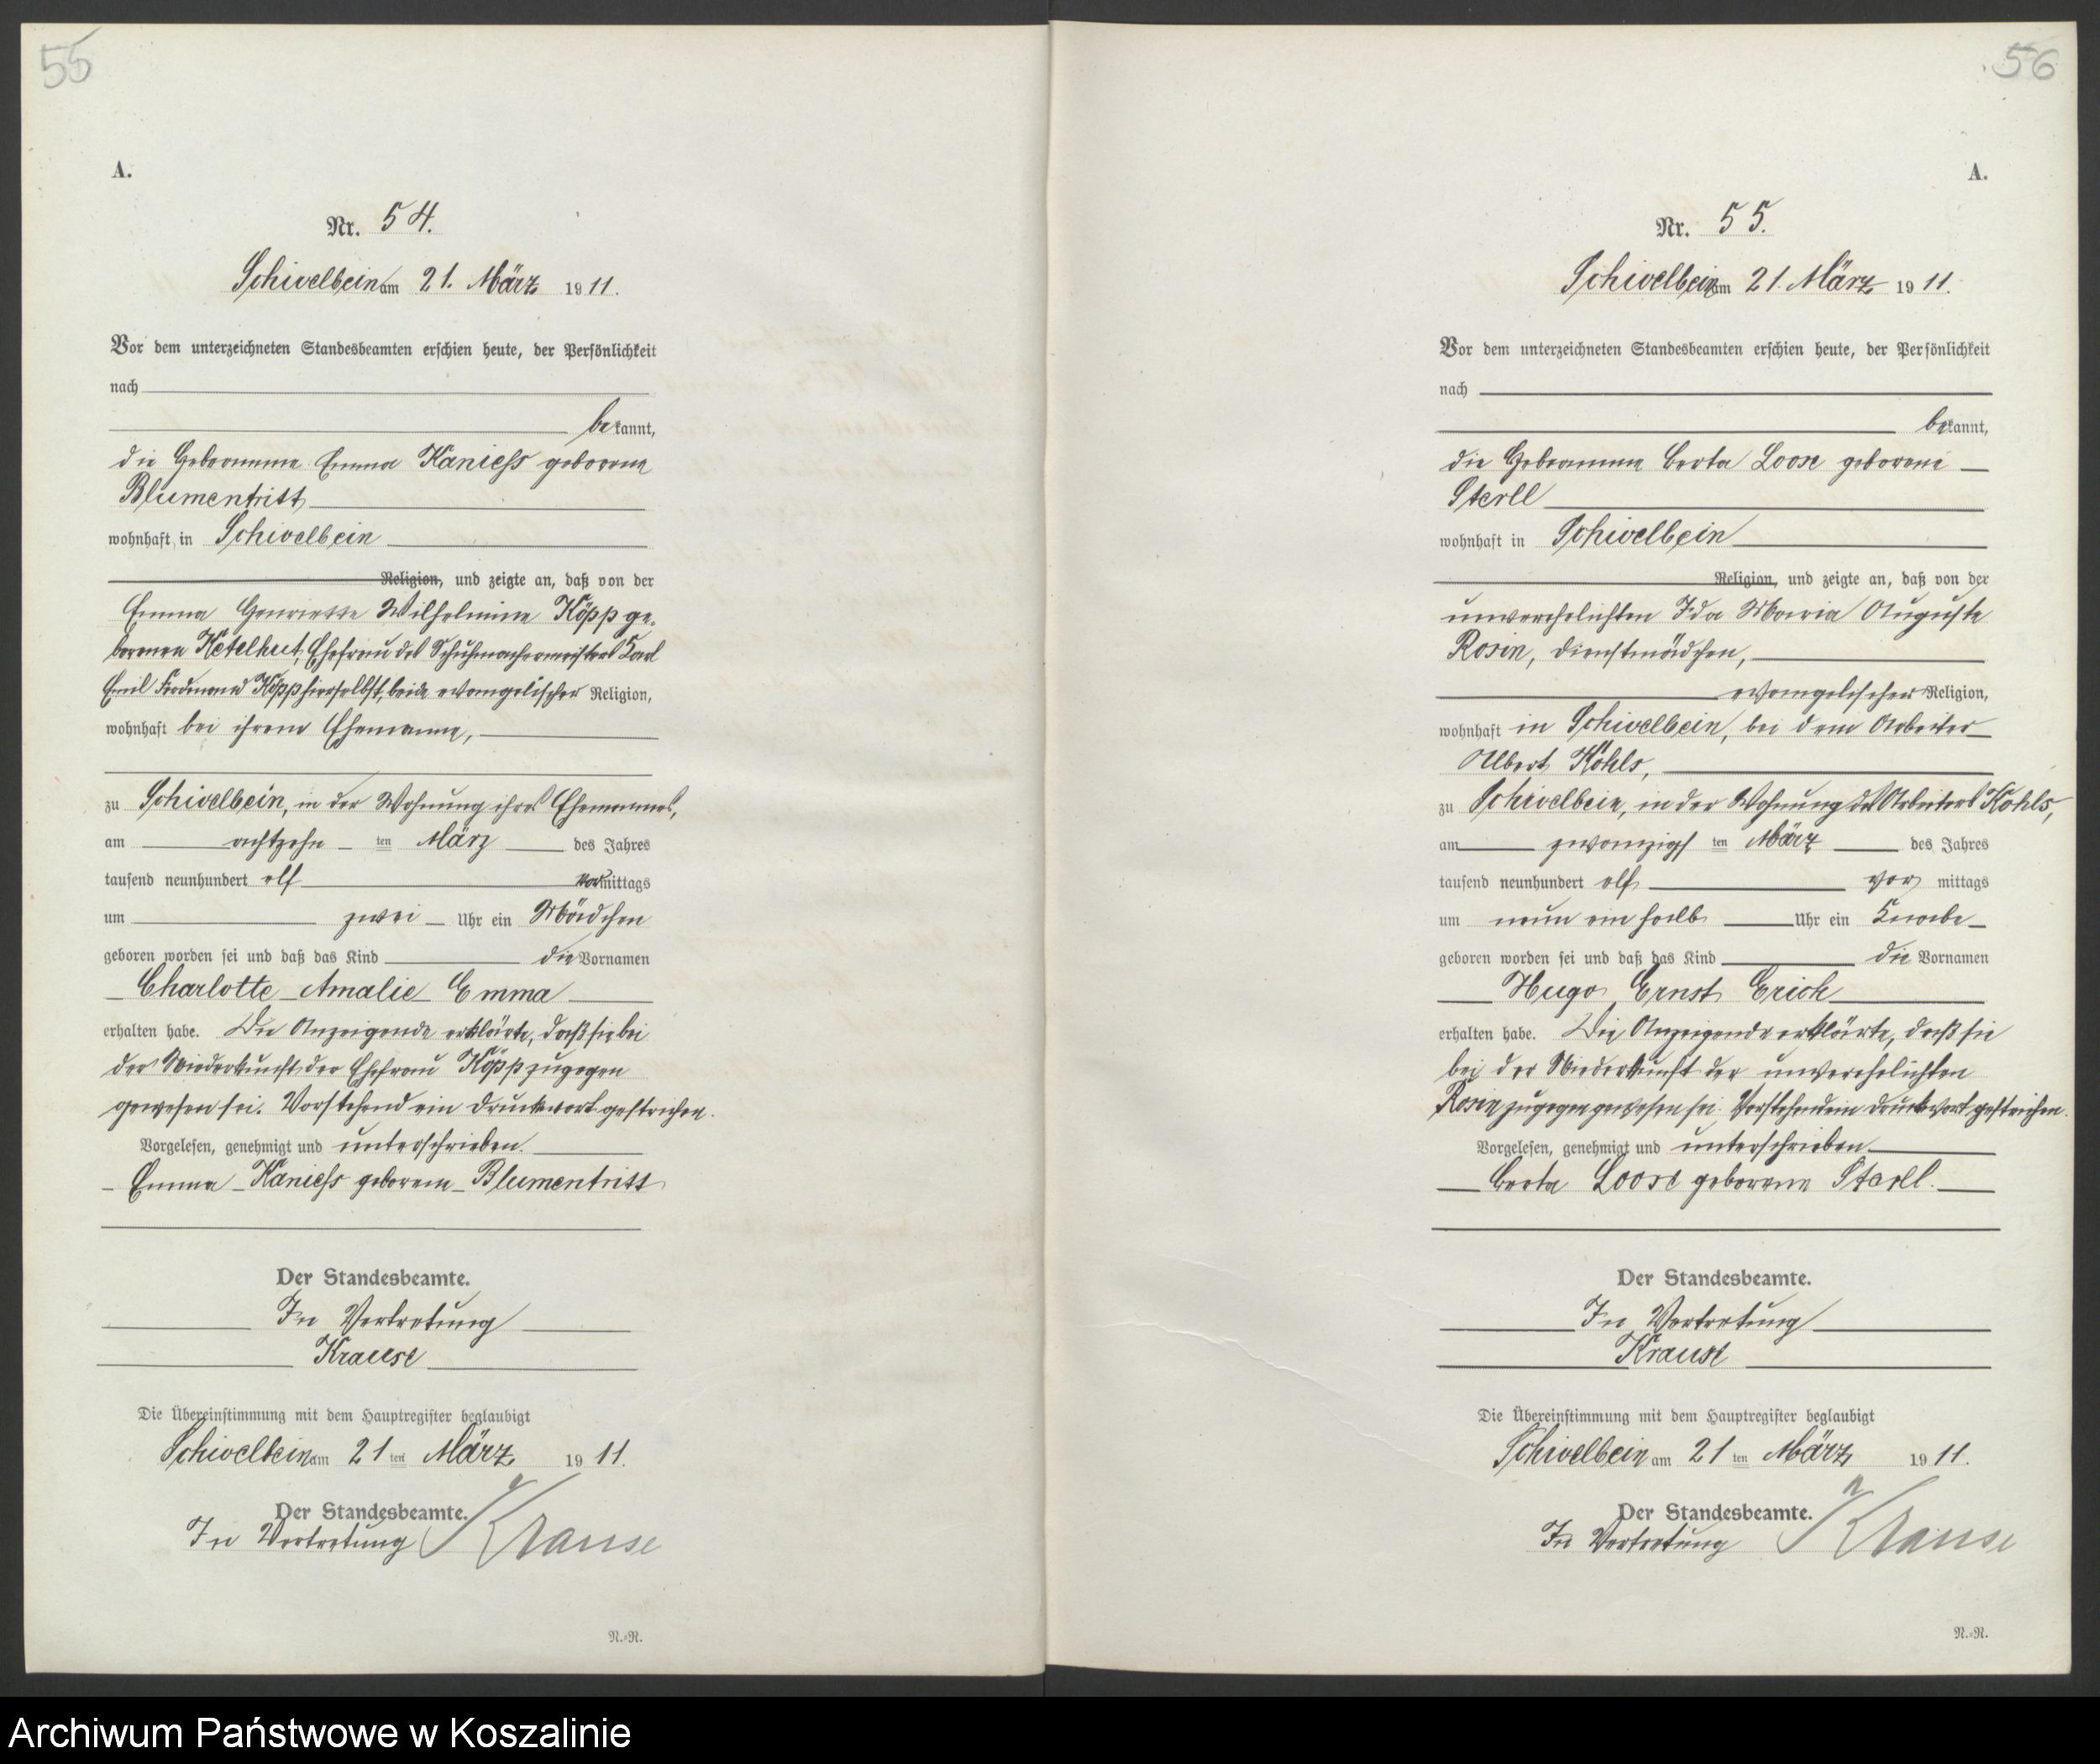 55
A.
Nr. 54.
Schivelbein am 21. März 1911.
Vor dem unterzeichneten Standesbeamten erschien heute, der Persönlichkeit
nach
bekannt,
die Hebamme Emma Kaniess geborene
Blumentritt
wohnhaft in Schivelbein
Religion, und zeigte an, daß von der
Emma Henriette Wilhelmine Köpp ge-
borenen Ketelhut, Ehefrau des Schuhmachermeisters Karl
Emil Ferdinand Köpp hierselbst, beide evangelischer Religion,
wohnhaft bei ihrem Ehemanne,
zu Schivelbein, in der Wohnung ihres Ehemannes,
am achtzehn ten März des Jahres
tausend neunhundert elf Vormittags
um zwei Uhr ein Mädchen
geboren worden sei und daß das Kind die Vornamen
Charlotte Amalie Emma
erhalten habe. Die Anzeigende erklärte, daß sie bei
der Niederkunft der Ehefrau Köpp zugegen
gewesen sei. Vorstehend ein Druckwort gestrichen.
Vorgelesen, genehmigt und unterschrieben.
Emma Kaniess geborene Blumentritt
Der Standesbeamte.
In Vertretung
Krause
Die Übereinstimmung mit dem Hauptregister beglaubigt
Schivelbein am 21 ten März 1911.
Der Standesbeamte.
In Vertretung Krause
N.=N.
56
A.
Nr. 55.
Schivelbein am 21. März 1911.
Vor dem unterzeichneten Standesbeamten erschien heute, der Persönlichkeit
nach
bekannt,
die Hebamme Berta Loose geborene
Sterll
wohnhaft in Schivelbein
Religion, und zeigte an, daß von der
unverehelichten Ida Maria Auguste
Rosin, Dienstmädchen,
evangelischer Religion,
wohnhaft in Schivelbein, bei dem Arbeiter
Albert Kohls,
zu Schivelbein, in der Wohnung des Arbeiters Kohls,
am zwanzigs ten März des Jahres
tausend neunhundert elf vor mittags
um neun ein halb Uhr ein Knabe
geboren worden sei und daß das Kind die Vornamen
Hugo Ernst Erich
erhalten habe. Die Anzeigende erklärte, daß sie
bei der Niederkunft der unverehelichten
Rosin zugegen gewesen sei. Vorstehend ein Druckwort gestrichen.
Vorgelesen, genehmigt und unterschrieben
Berta Loose geborene Sterll.
Der Standesbeamte.
In Vertretung
Krause
Die Übereinstimmung mit dem Hauptregister beglaubigt
Schivelbein am 21 ten März 1911.
Der Standesbeamte.
In Vertretung Krause
N.=N.
Archiwum Państwowe w Koszalinie